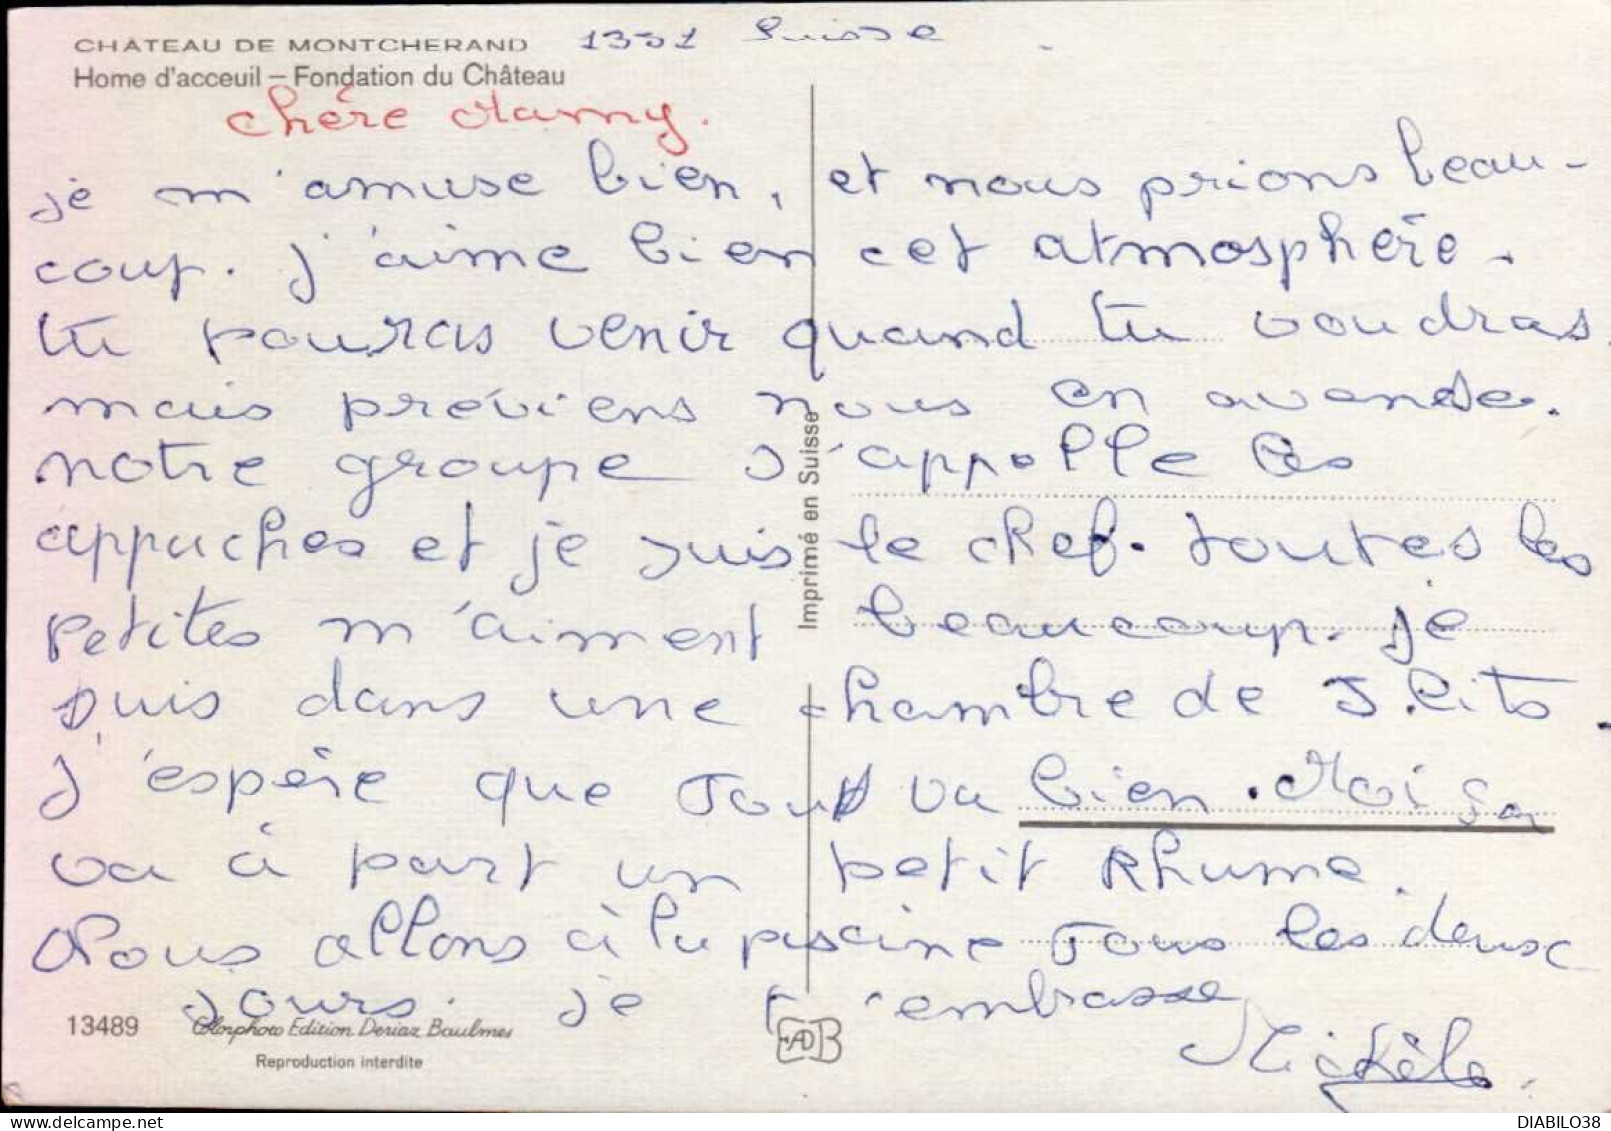 CHÂTEAU DE MONTCHERAND 1351 Suisse
Home d'acceuil – Fondation du Château
chère Mamy.
je m'amuse bien, et nous prions beau-
coup. j'aime bien cet atmosphère.
tu pouras venir quand tu voudras
mais préviens nous en avense.
notre groupe s'appelle les
appaches et je suis le chef. toutes les
petites m'aiment beaucoup. je
suis dans une chambre de 5 lits.
j'espère que tout va bien. Moi ça
va à part un petit Rhume.
Nous allons à la piscine tous les deux
jours. je t'embrasse
Michèle.
Imprimé en Suisse
13489 Colorphoto Edition Deriaz Baulmes
Reproduction interdite
DIABILO38